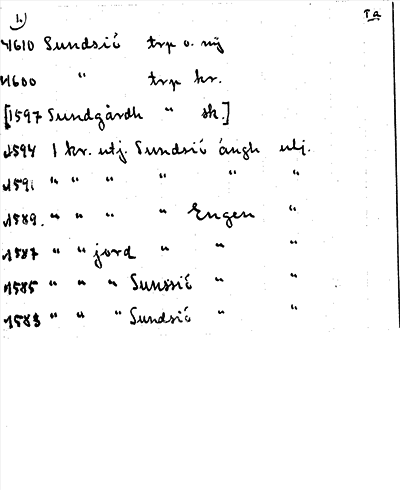 1) Ia
1610 Sundsiö trp o. nij
1600 " trp kr.
[1597 Sundgårdh " sk.]
1594 1 kr. utj. Sundsiö ängh utj.
1591 " " " " " "
1589. " " " " Engen "
1587 " " jord " " "
1585 " " " Sunssiö " "
1583 " " " Sundsiö " "